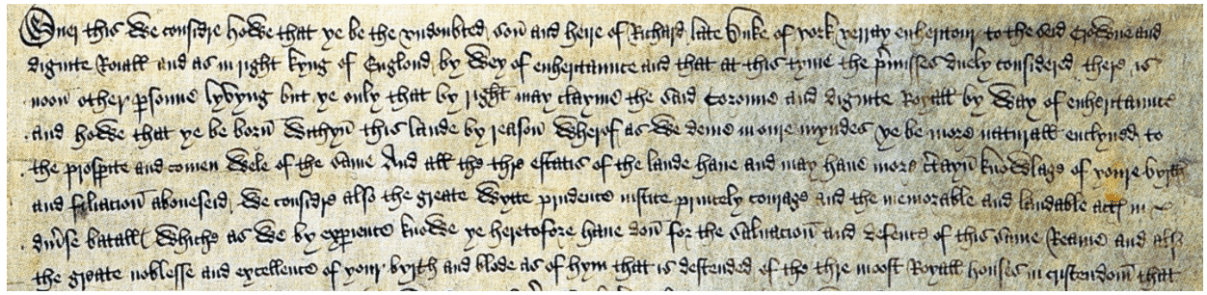 Ouer this we considre howe that ye be the vndoubted son and heire of Richard late Duke of york verray enheritour to the seid Crowne and
dignite Roiall and as in right kyng of Englond by wey of enheritaunce and that at this tyme the p'misses duely considered there is
noon other psonne lyvyng but ye only that by right may clayme the said Coronne and dignite Royall by way of enheritaunce
and howe that ye be born withyn this lande by reason wherof as we deme in oure myndes ye be more naturall enclyned to
the prospite and comen wele of the same And all the thre estatis of the lande haue and may haue more c'tayn knowlage of youre byrth
and filiacion aboueseid we considre also the greate wytte prudence iustice princely courage and the memorable and laudable actes in
diu'se bataill whiche as we by expience knowe ye heretofore haue don for the saluacion and defence of this same Reame and also
the greate noblesse and excellence of your byrth and blode as of hym that is descended of the thre moost Royall houses in cristendom that